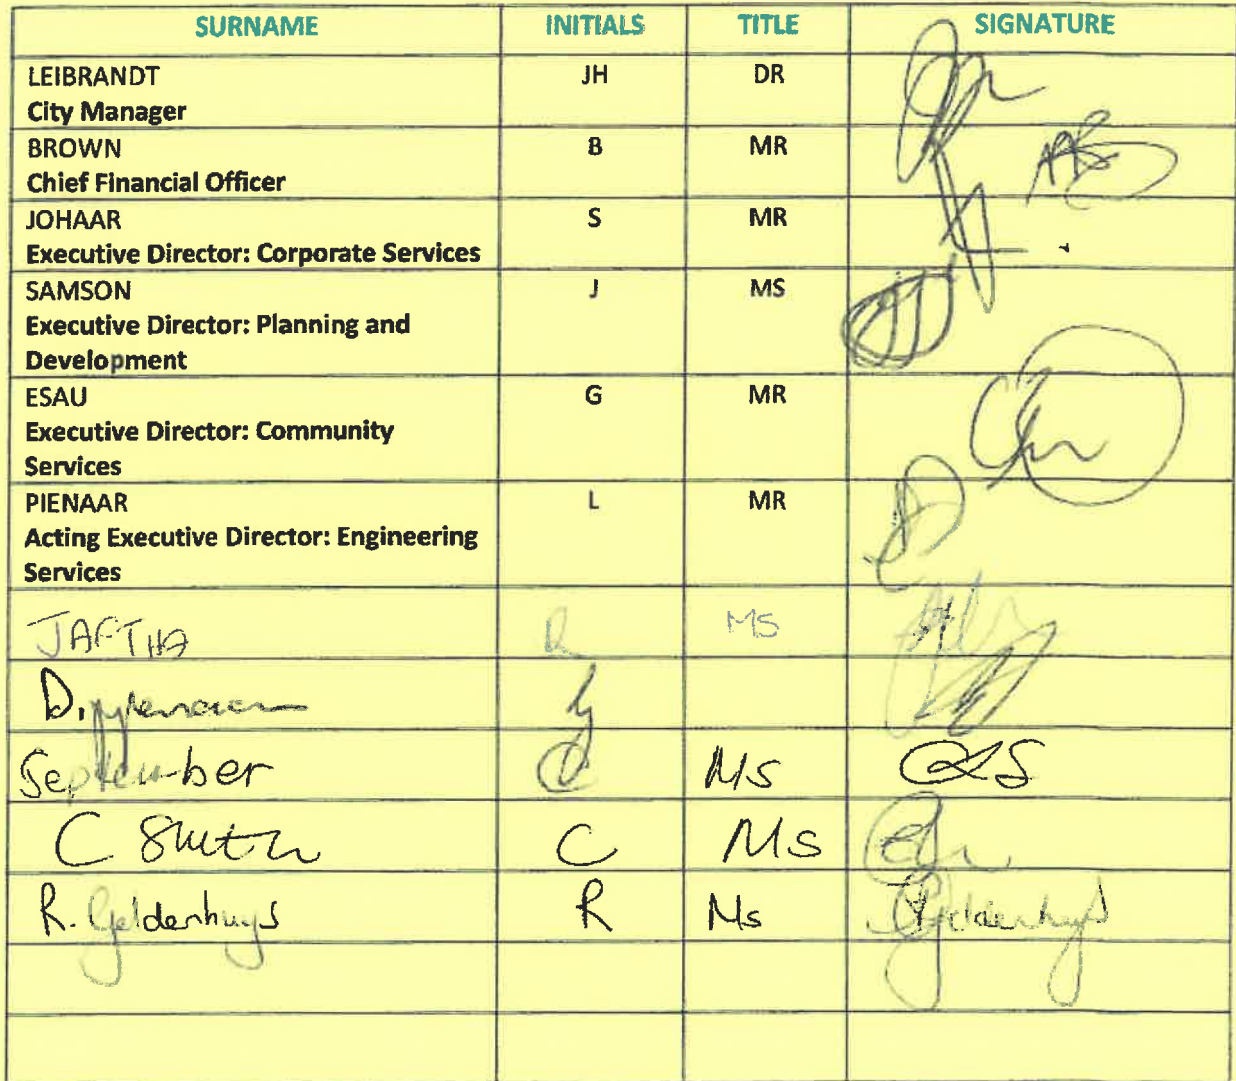 SURNAME INITIALS TITLE SIGNATURE
LEIBRANDT JH DR
City Manager
BROWN B MR
Chief Financial Officer
JOHAAR S MR
Executive Director: Corporate Services
SAMSON J MS
Executive Director: Planning and
Development
ESAU G MR
Executive Director: Community
Services
PIENAAR L MR
Acting Executive Director: Engineering
Services
JAFTHA R MS
D.
September Ms
C Smith C Ms
R. Geldenhuys R Ms Geldenhuys